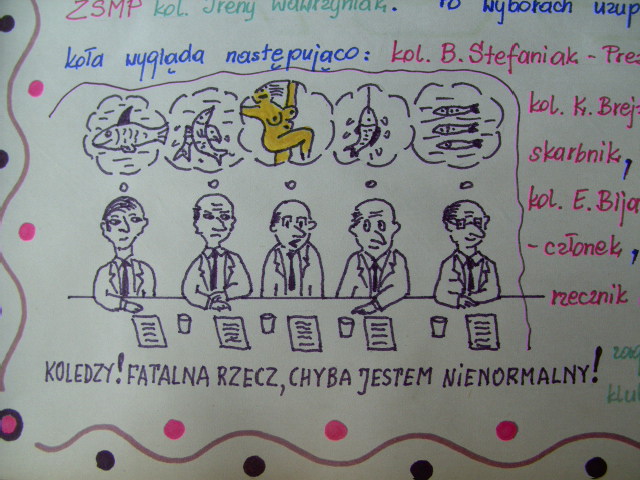 ZSMP kol. Ireny Wawrzyniak. Po wyborach uzup
koła wygląda następująco: kol. B. Stefaniak - Prez
kol. K. Brej
skarbnik,
kol. E. Bija
- członek,
rzecznik
KOLEDZY! FATALNA RZECZ, CHYBA JESTEM NIENORMALNY!
klub